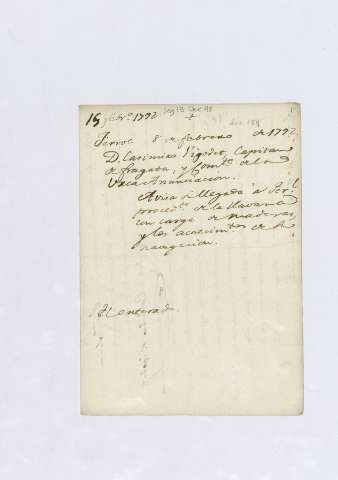 15 febr.º 1792
+
Ferrol 8 de febrero de 1792
D. Casimiro Vigodet, Capitan
de fragata, y Com.te de la
Urca Anunciacion.
Avisa su llegada a
proced.te de la Havana
con carga de maderas,
y los acaecim.tos de su
navegacion.
Enterado